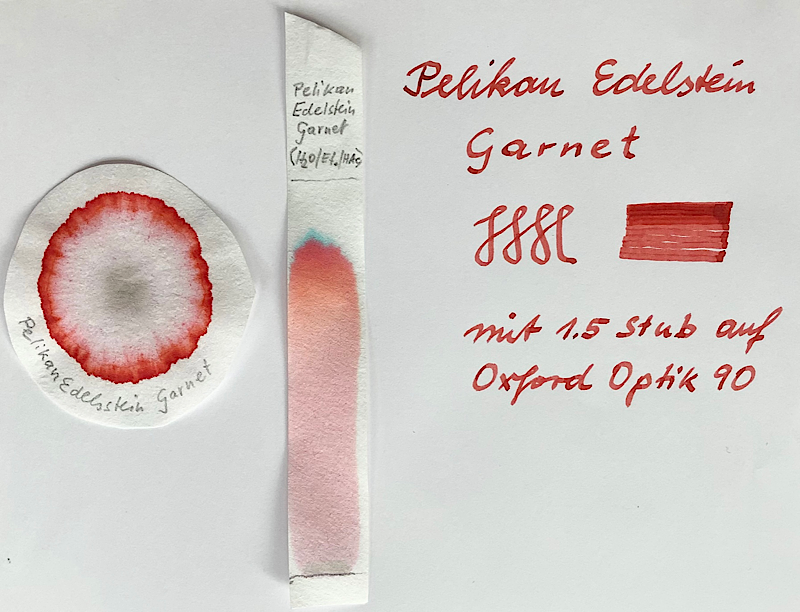 Pelikan Edelstein Garnet
Pelikan
Edelstein
Garnet
(H2O/Et./HAc)
Pelikan Edelstein
Garnet
mit 1.5 Stub auf
Oxford Optik 90